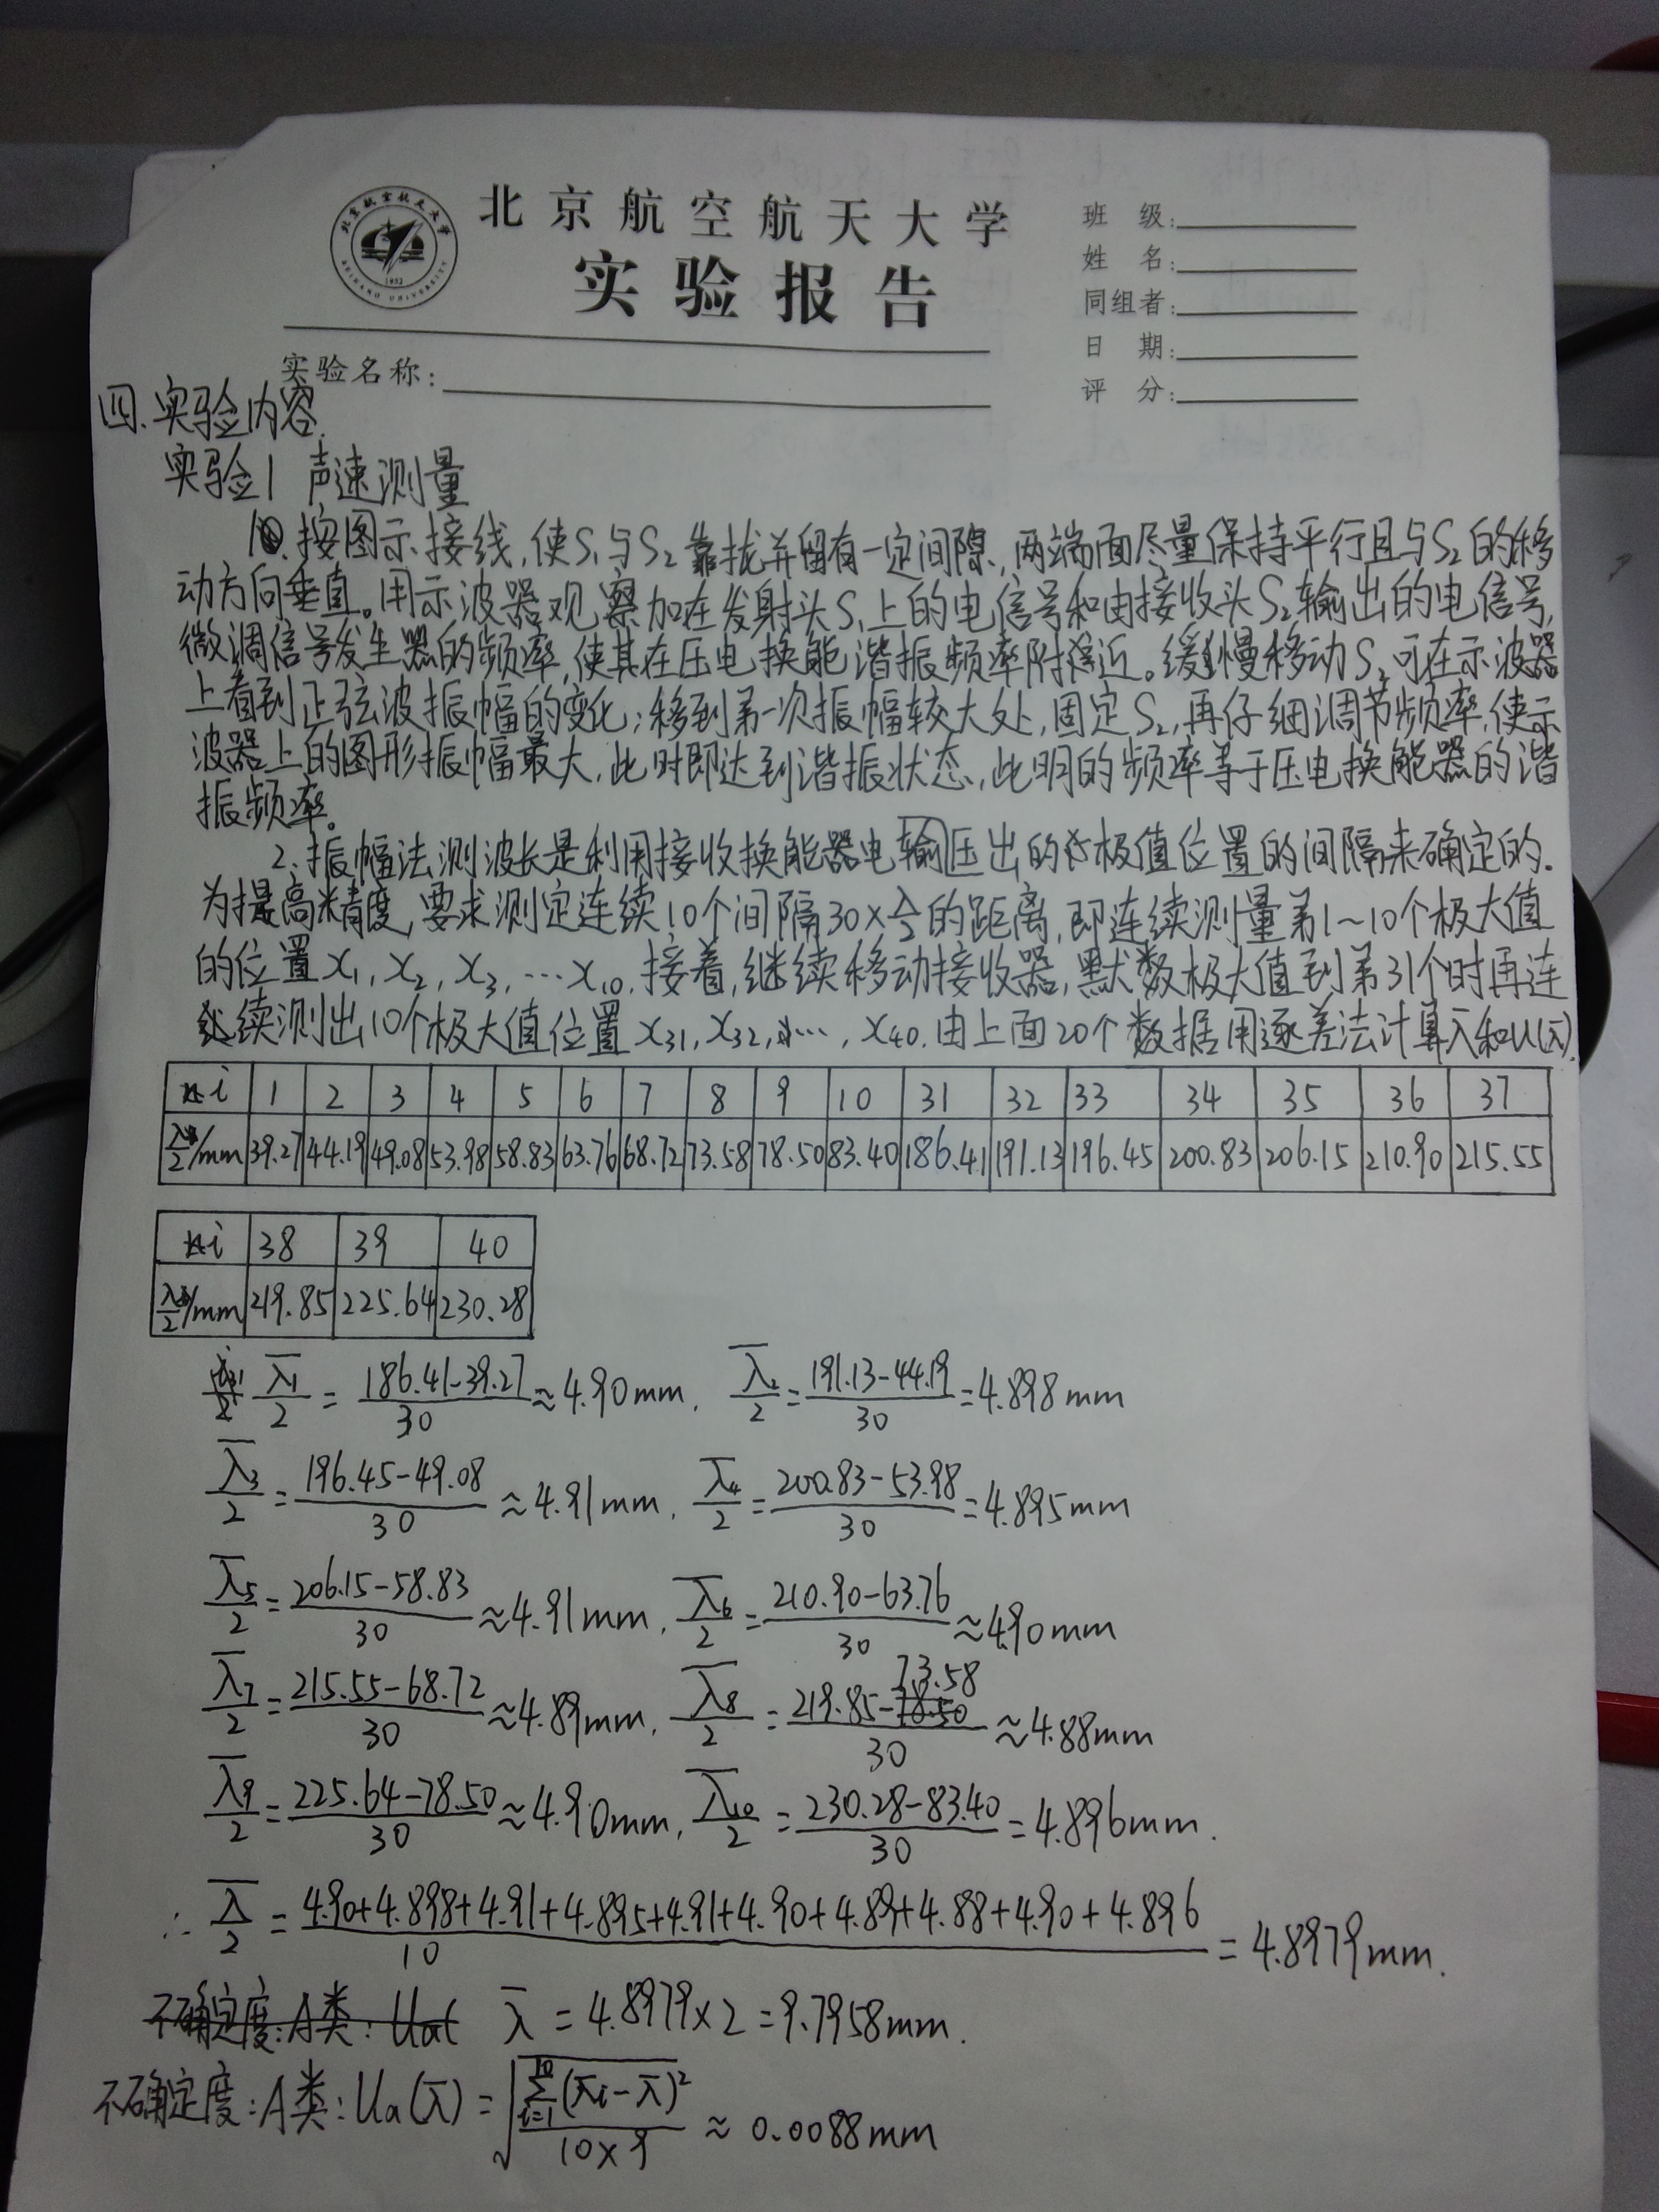 北京航空航天大学
实验报告
班 级:
姓 名:
同组者:
日 期:
评 分:
实验名称:
四. 实验内容.
实验1 声速测量
1. 按图示接线,使S₁与S₂靠拢并留有一定间隙,两端面尽量保持平行且与S₂的移
动方向垂直。用示波器观察加在发射头S₁上的电信号和由接收头S₂输出的电信号,
微调信号发生器的频率,使其在压电换能谐振频率附近。缓慢移动S₂,可在示波器
上看到正弦波振幅的变化;移到第一次振幅较大处,固定S₂,再仔细调节频率,使示
波器上的图形振幅最大,此时即达到谐振状态,此明的频率等于压电换能器的谐
振频率。
2. 振幅法测波长是利用接收换能器电输压出的极值位置的间隔来确定的.
为提高精度,要求测定连续10个间隔30×λ/2的距离,即连续测量第1~10个极大值
的位置x₁, x₂, x₃, …x₁₀. 接着,继续移动接收器,默数极大值到第31个时再连
续测出10个极大值位置x₃₁, x₃₂, …, x₄₀. 由上面20个数据用逐差法计算λ̄和u(λ̄).
i 1 2 3 4 5 6 7 8 9 10 31 32 33 34 35 36 37
λ/2/mm 39.27 44.19 49.08 53.98 58.83 63.76 68.72 73.58 78.50 83.40 186.41 191.13 196.45 200.83 206.15 210.90 215.55
i 38 39 40
λ/2/mm 219.85 225.64 230.28
λ̄₁/2 = (186.41-39.27)/30 ≈ 4.90mm. λ̄₂/2 = (191.13-44.19)/30 = 4.898mm
λ̄₃/2 = (196.45-49.08)/30 ≈ 4.91mm. λ̄₄/2 = (200.83-53.98)/30 = 4.895mm
λ̄₅/2 = (206.15-58.83)/30 ≈ 4.91mm. λ̄₆/2 = (210.90-63.76)/30 ≈ 4.90mm
λ̄₇/2 = (215.55-68.72)/30 ≈ 4.89mm. λ̄₈/2 = (219.85-73.58)/30 ≈ 4.88mm
λ̄₉/2 = (225.64-78.50)/30 ≈ 4.90mm. λ̄₁₀/2 = (230.28-83.40)/30 = 4.896mm.
∴ λ̄/2 = (4.90+4.898+4.91+4.895+4.91+4.90+4.89+4.88+4.90+4.896)/10 = 4.8979mm.
不确定度:A类: Ua( λ̄ = 4.8979×2 = 9.7958mm.
不确定度:A类:Ua(λ̄) = √(∑_{i=1}^{10}(λ̄i-λ̄)²/(10×9)) ≈ 0.0088mm